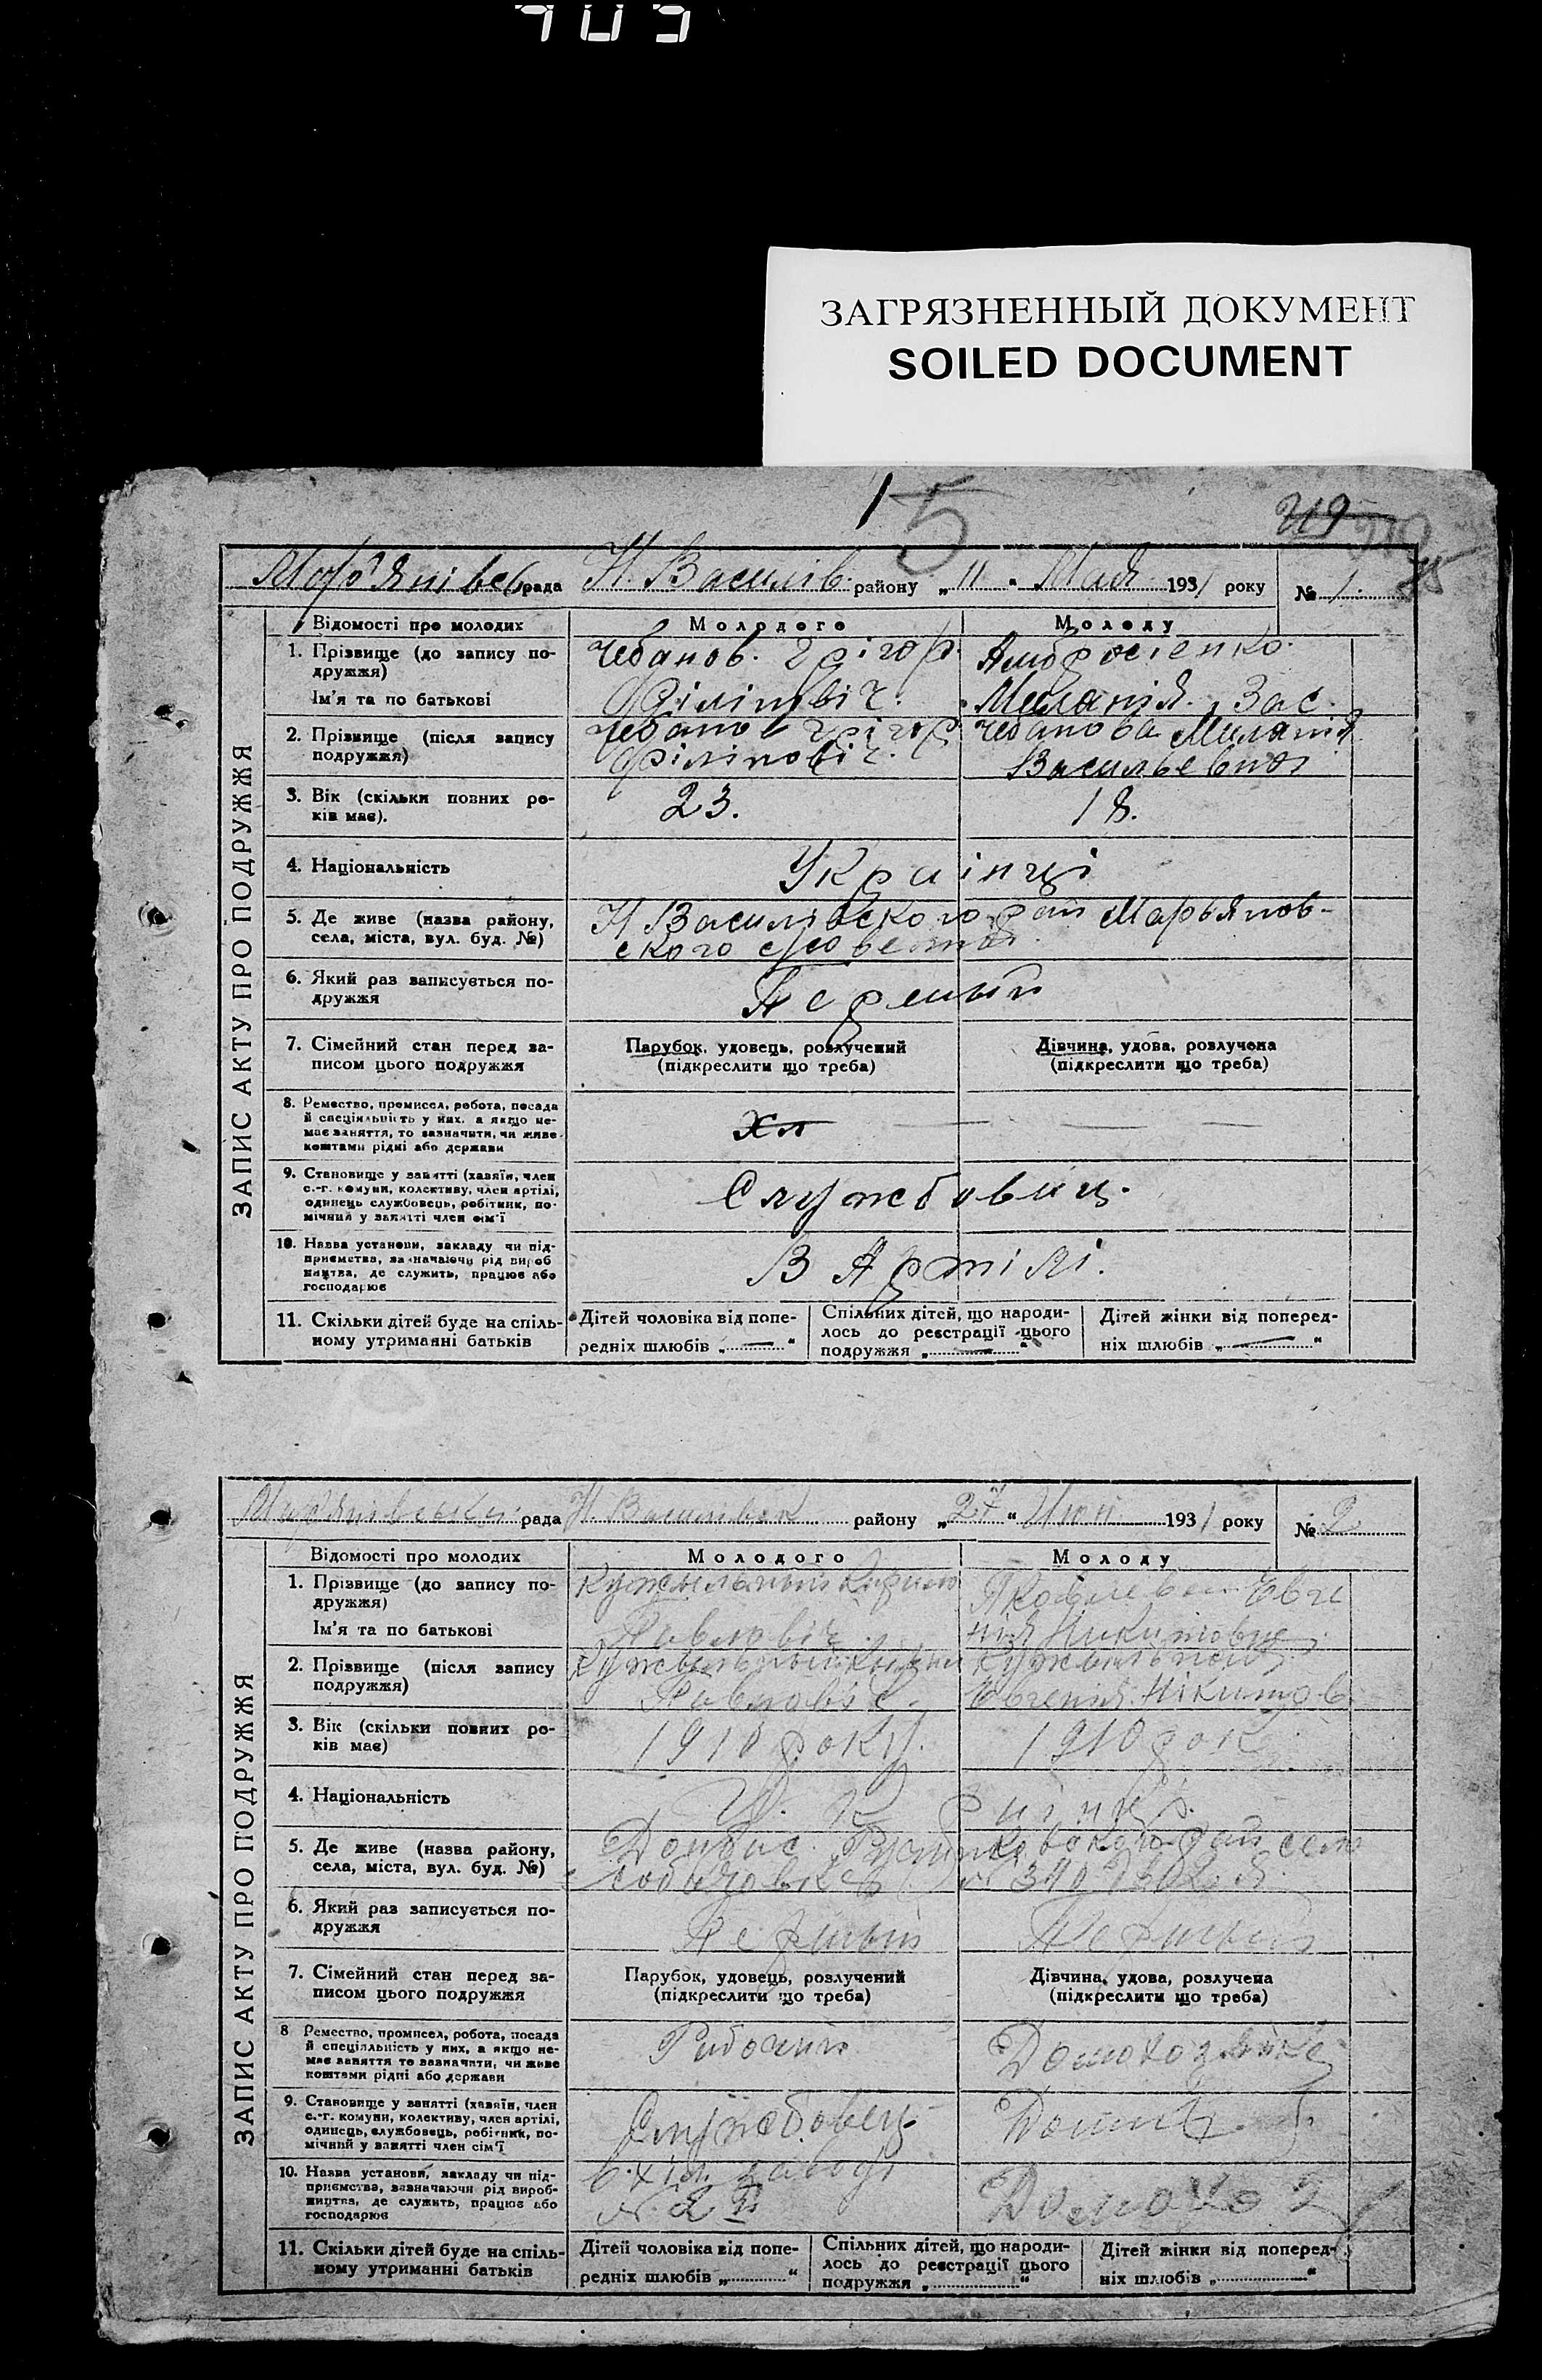 ЗАГРЯЗНЕННЫЙ ДОКУМЕНТ
SOILED DOCUMENT
1 5
219
75
Мар'янівс. рада Н Василів. району „11“ Мая 1931 року № 1.
ЗАПИС АКТУ ПРО ПОДРУЖЖЯ
Відомості про молодих Молодого Молоду
1. Прізвище (до запису по-
дружжя)
Чебанов. Грігор. Амбросіенко.
Ім'я та по батькові Філіпвіч. Меланія. Вас.
2. Прізвище (після запису
подружжя)
Чебанов Грігор Чебанова Миланія
Філіповіч. Васильевная
3. Вік (скільки повних ро-
ків має).
23. 18.
4. Національність Українці
5. Де живе (назва району,
села, міста, вул. буд. №)
Н Василівского рай Марьянов-
ского
6. Який раз записується по-
дружжя
Первый
7. Сімейний стан перед за-
писом цього подружжя
Парубок, удовець, розлучений
(підкреслити що треба)
Дівчина, удова, розлучена
(підкреслити що треба)
8. Ремество, промисел, робота, посада
й спеціяльність у них, а якщо не-
має заняття, то зазначити, чи живе
коштами рідні або держави
Хл — — —
9. Становище у занятті (хазяїн, член
с.-г. комуни, колективу, член артілі,
одинець службовець, робітник, по-
мічний у занятті член сім'ї
Службовиц.
10. Назва установи, закладу чи під-
приємства, зазначаючи рід вироб
ництва, де служить, працює або
господарює
В Артілі.
11. Скільки дітей буде на спіль-
ному утриманні батьків
Дітей чоловіка від попе-
редніх шлюбів „—“
Спільних дітей, що народи-
лось до реєстрації цього
подружжя „—“
Дітей жінки від поперед-
ніх шлюбів „—“
Мар'янівськи рада Н. Василівск району „27“ Июн 1931 року № 2
ЗАПИС АКТУ ПРО ПОДРУЖЖЯ
Відомості про молодих Молодого Молоду
1. Прізвище (до запису по-
дружжя)
Яковлева Евге
Ім'я та по батькові Павловіч. нія Никитовне.
2. Прізвище (після запису
подружжя)
Павловіч. Евгенія Нікитов.
3. Вік (скільки повних ро-
ків має)
1910 року. 1910 рок
4. Національність Українці.
5. Де живе (назва району,
села, міста, вул. буд. №)
Донбас рай село
6. Який раз записується по-
дружжя
Первый Первый
7. Сімейний стан перед за-
писом цього подружжя
Парубок, удовець, розлучений
(підкреслити що треба)
Дівчина, удова, розлучена
(підкреслити що треба)
8 Ремество, промисел, робота, посада
й спеціяльність у них, а якщо не-
має заняття то зазначити, чи живе
коштами рідні або держави
Рабочий Домохозяйка
9. Становище у занятті (хазяїн, член
с.-г. комуни, колективу, член артілі,
одинець, службовець, робітник, по-
мічний у занятті член сім'ї
Службовец
10. Назва установи, закладу чи під-
приємства, зазначаючи рід вироб-
ництва, де служить, працює або
господарює
в хім. заводі
Домохоз
11. Скільки дітей буде на спіль-
ному утриманні батьків
Дітей чоловіка від попе-
редніх шлюбів „ “
Спільних дітей, що народи-
лось до реєстрації цього
подружжя „ “
Дітей жінки від поперед-
ніх шлюбів „ “